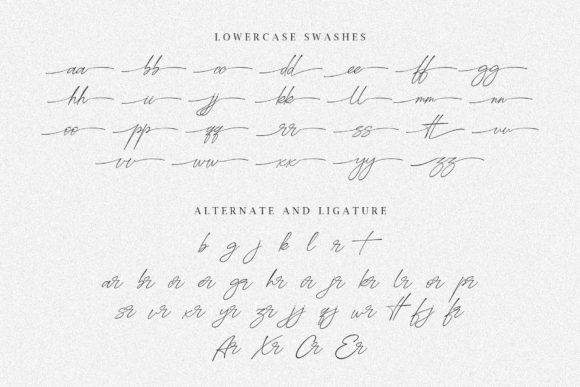 LOWERCASE SWASHES
aa bb cc dd ee ff gg
hh ii jj kk ll mm nn
oo pp qq rr ss tt uu
vv ww xx yy zz
ALTERNATE AND LIGATURE
b g j k l r t
ar br cr er gr hr ir jr kr lr or pr
sr ur xr yr zr jj qj wr tt fj fr
Ar Xr Cr Er